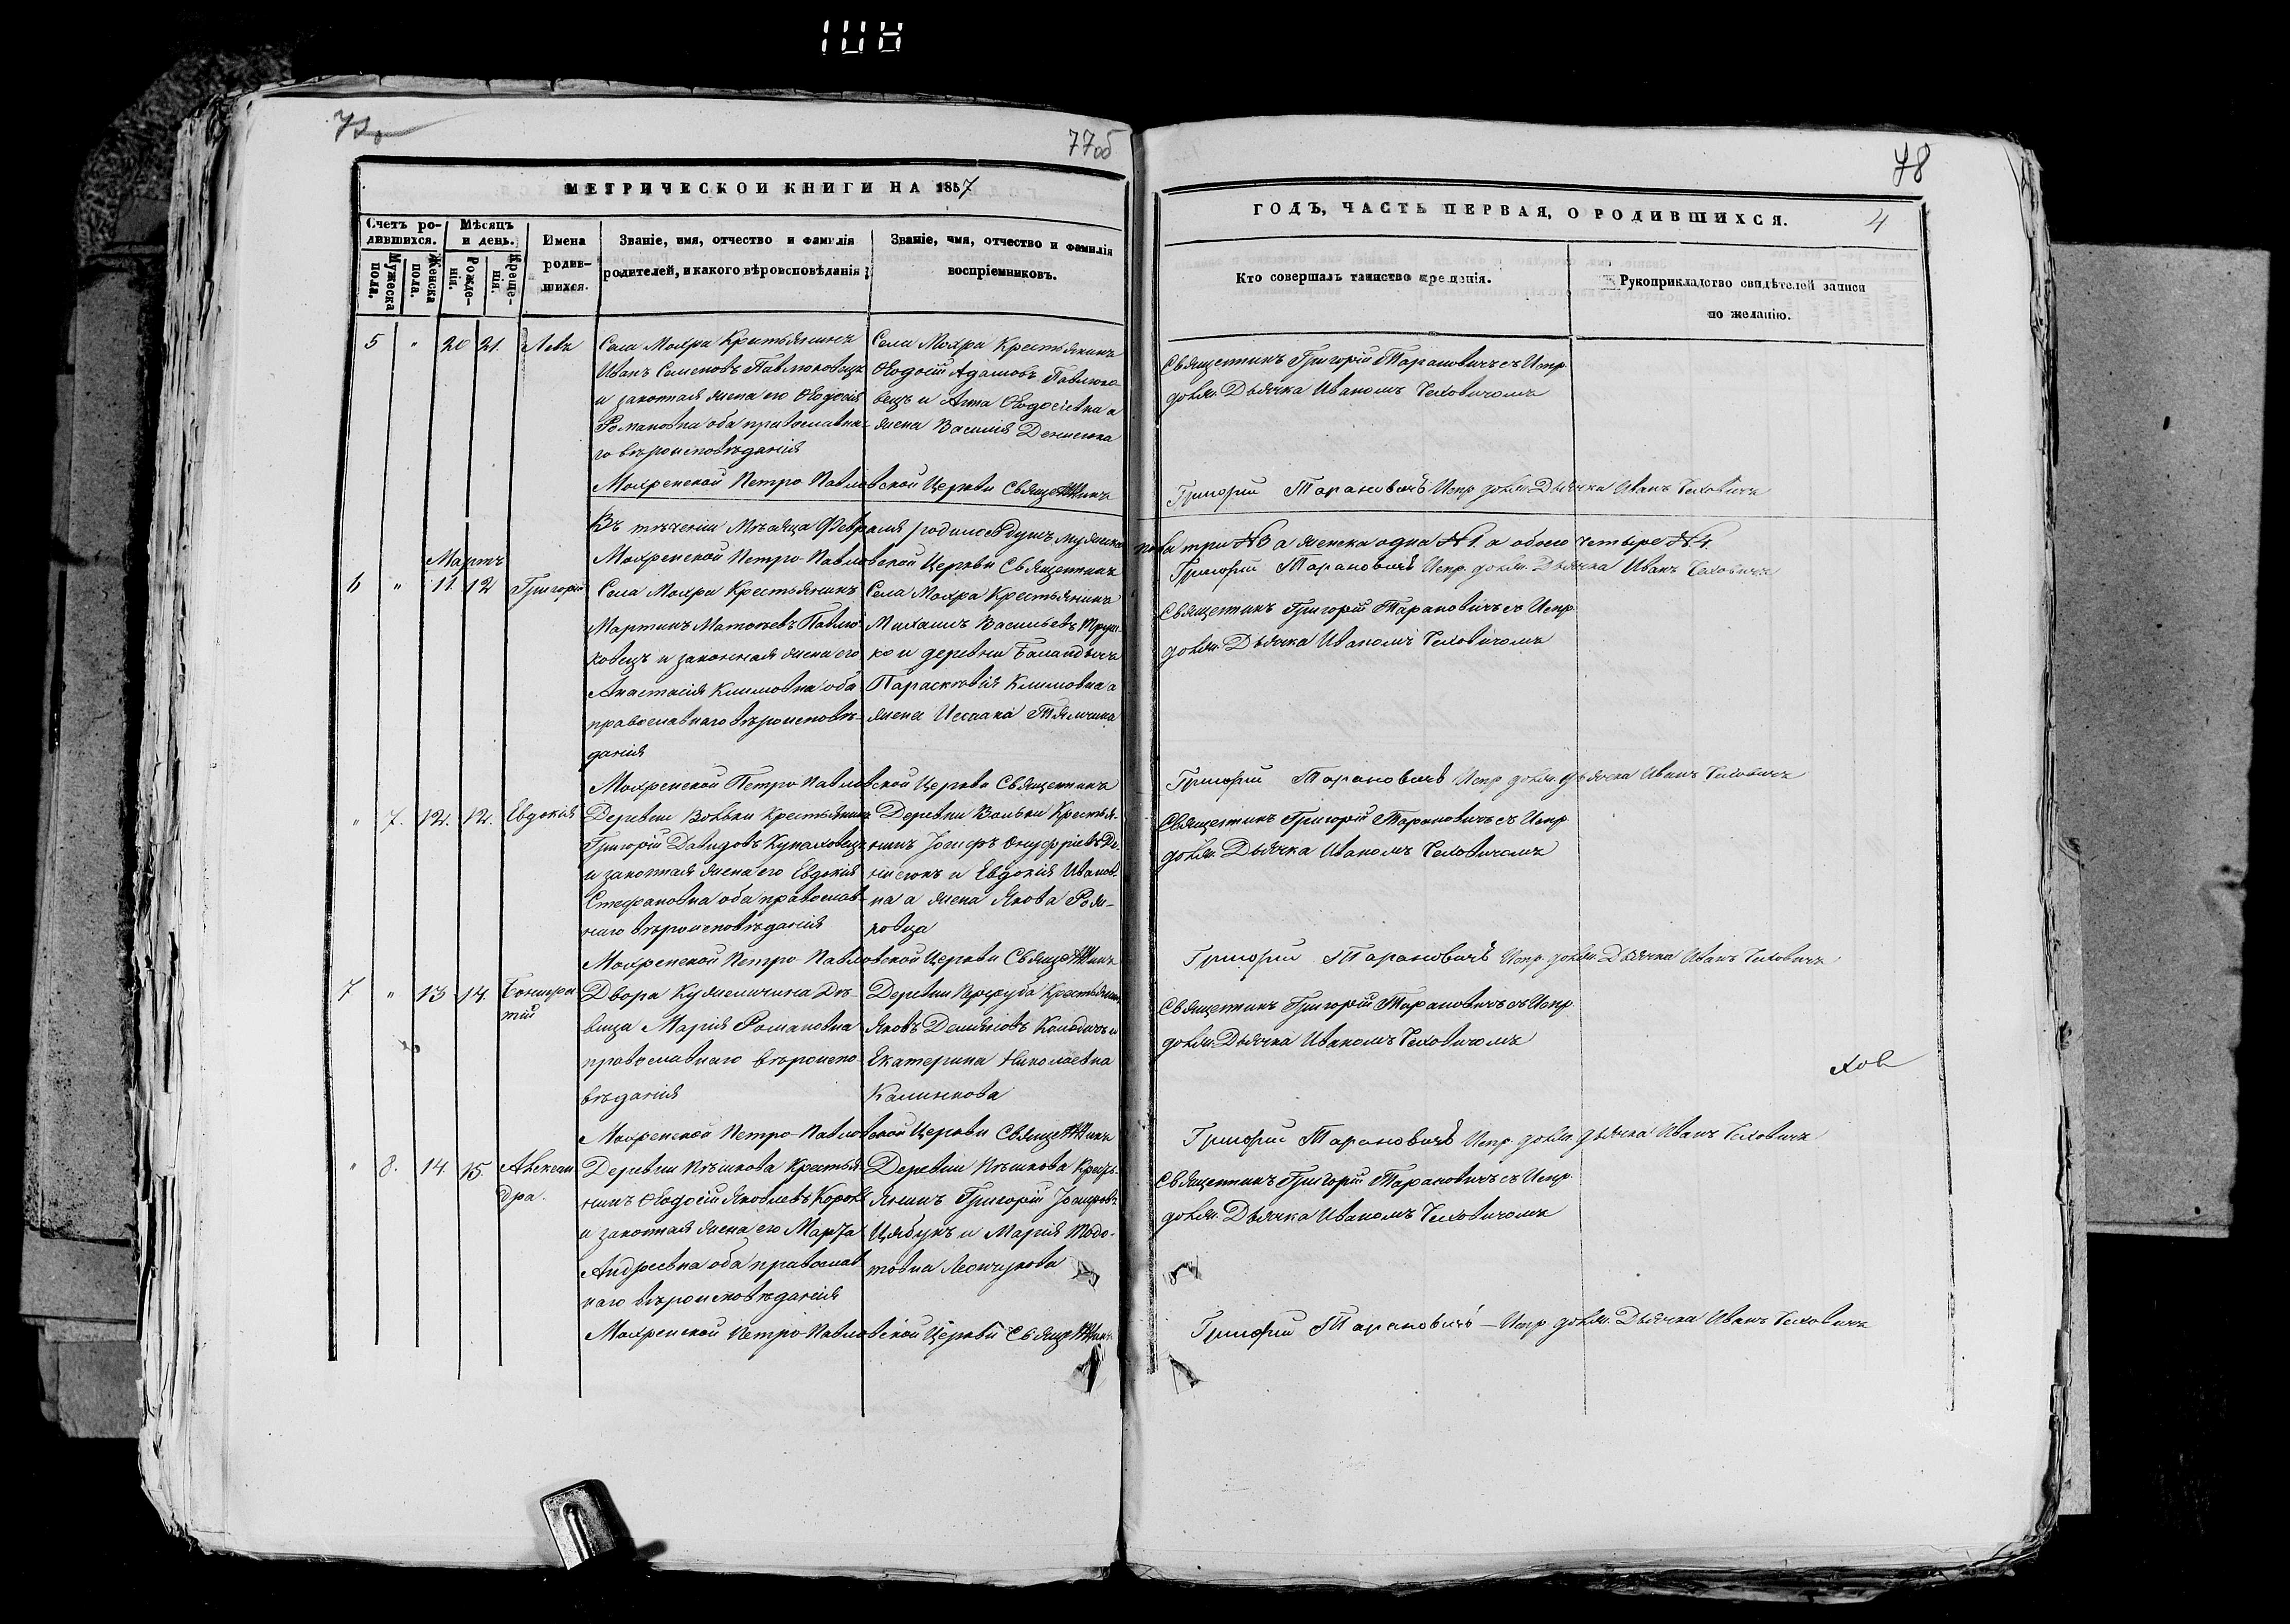 77об
78
МЕТРИЧЕСКОЙ КНИГИ НА 1857
ГОДЪ, ЧАСТЬ ПЕРВАЯ, О РОДИВШИХСЯ.
4
Счетъ ро-
дившихся.
Мужеска
пола.
Женска
пола.
Мѣсяцъ
и день.
Рожде-
нія.
Креще-
нія.
Имена
родив-
шихся.
Званіе, имя, отчество и фамилія
родителей, и какого вѣроисповѣданія
Званіе, имя, отчество и фамилія
воспріемниковъ.
Кто совершалъ таинство крещенія.
Рукоприкладство свидѣтелей записи
по желанію.
5 " 20 21. Левъ
Села Мохра Крестьянинъ
Иванъ Семеновъ Павлюковецъ
и законная жена его Ѳеодосія
Романовна оба православна-
го вѣроисповѣданія
Села Мохра Крестьянинъ
Ѳеодосій Адамовъ Павлюко-
вецъ и Анна Ѳеодосіевна а
жена Василія Денисюка
Священникъ Григорій Тарановичъ съ Испр.
должн. Дьячка Иваномъ Чеховичомъ
Мохренской Петро-Павловской Церкви Священникъ Григорій Тарановичъ Испр. должн. Дьячка Иванъ Чеховичъ
Въ теченіи Мѣсяца Февраля родилось душъ мужеска пола три №3 а женска одна №1. а обоего четыре №4.
Мохренской Петро-Павловской Церкви Священникъ Григорій Тарановичъ Испр. должн. Дьячка Иванъ Чеховичъ
Мартъ
6 " 11. 12 Григорій
Села Мохра Крестьянинъ
Мартинъ Матѳеевъ Павлю-
ковецъ и законная жена его
Анастасія Климовна оба
православнаго вѣроисповѣ-
данія
Села Мохра Крестьянинъ
Михаилъ Васильевъ
ко и деревни
Параскевія Климовна а
жена Исаака
Священникъ Григорій Тарановичъ съ Испр.
должн. Дьячка Иваномъ Чеховичомъ
Мохренской Петро-Павловской Церкви Священникъ Григорій Тарановичъ Испр. должн. Дьячка Иванъ Чеховичъ
" 7. 12. 12. Евдокія
Деревни Вольки Крестьянинъ
Григорій Давидовъ Кухаковецъ
и законная жена его Евдокія
Стефановна оба православ-
наго вѣроисповѣданія
Деревни Вольки Крестья-
нинъ Іосифъ Онуфріевъ Де-
нисюкъ и Евдокія Иванов-
на а жена Якова Рома-
новца
Священникъ Григорій Тарановичъ съ Испр.
должн. Дьячка Иваномъ Чеховичомъ
Мохренской Петро-Павловской Церкви Священникъ Григорій Тарановичъ Испр. должн. Дьячка Иванъ Чеховичъ
7 " 13 14.
Двора Кужеличина Дѣ-
вица Марія Романовна
православнаго вѣроиспо-
вѣданія
Деревни Крестьянинъ
Яковъ Демяновъ Колодичъ и
Екатерина Николаевна
Калинкова
Священникъ Григорій Тарановичъ съ Испр.
должн. Дьячка Иваномъ Чеховичомъ
хов
Мохренской Петро-Павловской Церкви Священникъ Григорій Тарановичъ Испр. должн. Дьячка Иванъ Чеховичъ
" 8. 14. 15. Алексан-
дра.
Деревни Пѣшкова Крестья-
нинъ Ѳеодосій Яковлевъ
и законная жена его Марѳа
Андреевна оба православ-
наго вѣроисповѣданія
Деревни Пѣшкова Кресть-
янинъ Григорій Іосифовъ
Цябукъ и Марія
Священникъ Григорій Тарановичъ съ Испр.
должн. Дьячка Иваномъ Чеховичомъ
Мохренской Петро-Павловской Церкви Священникъ Григорій Тарановичъ - Испр. должн. Дьячка Иванъ Чеховичъ